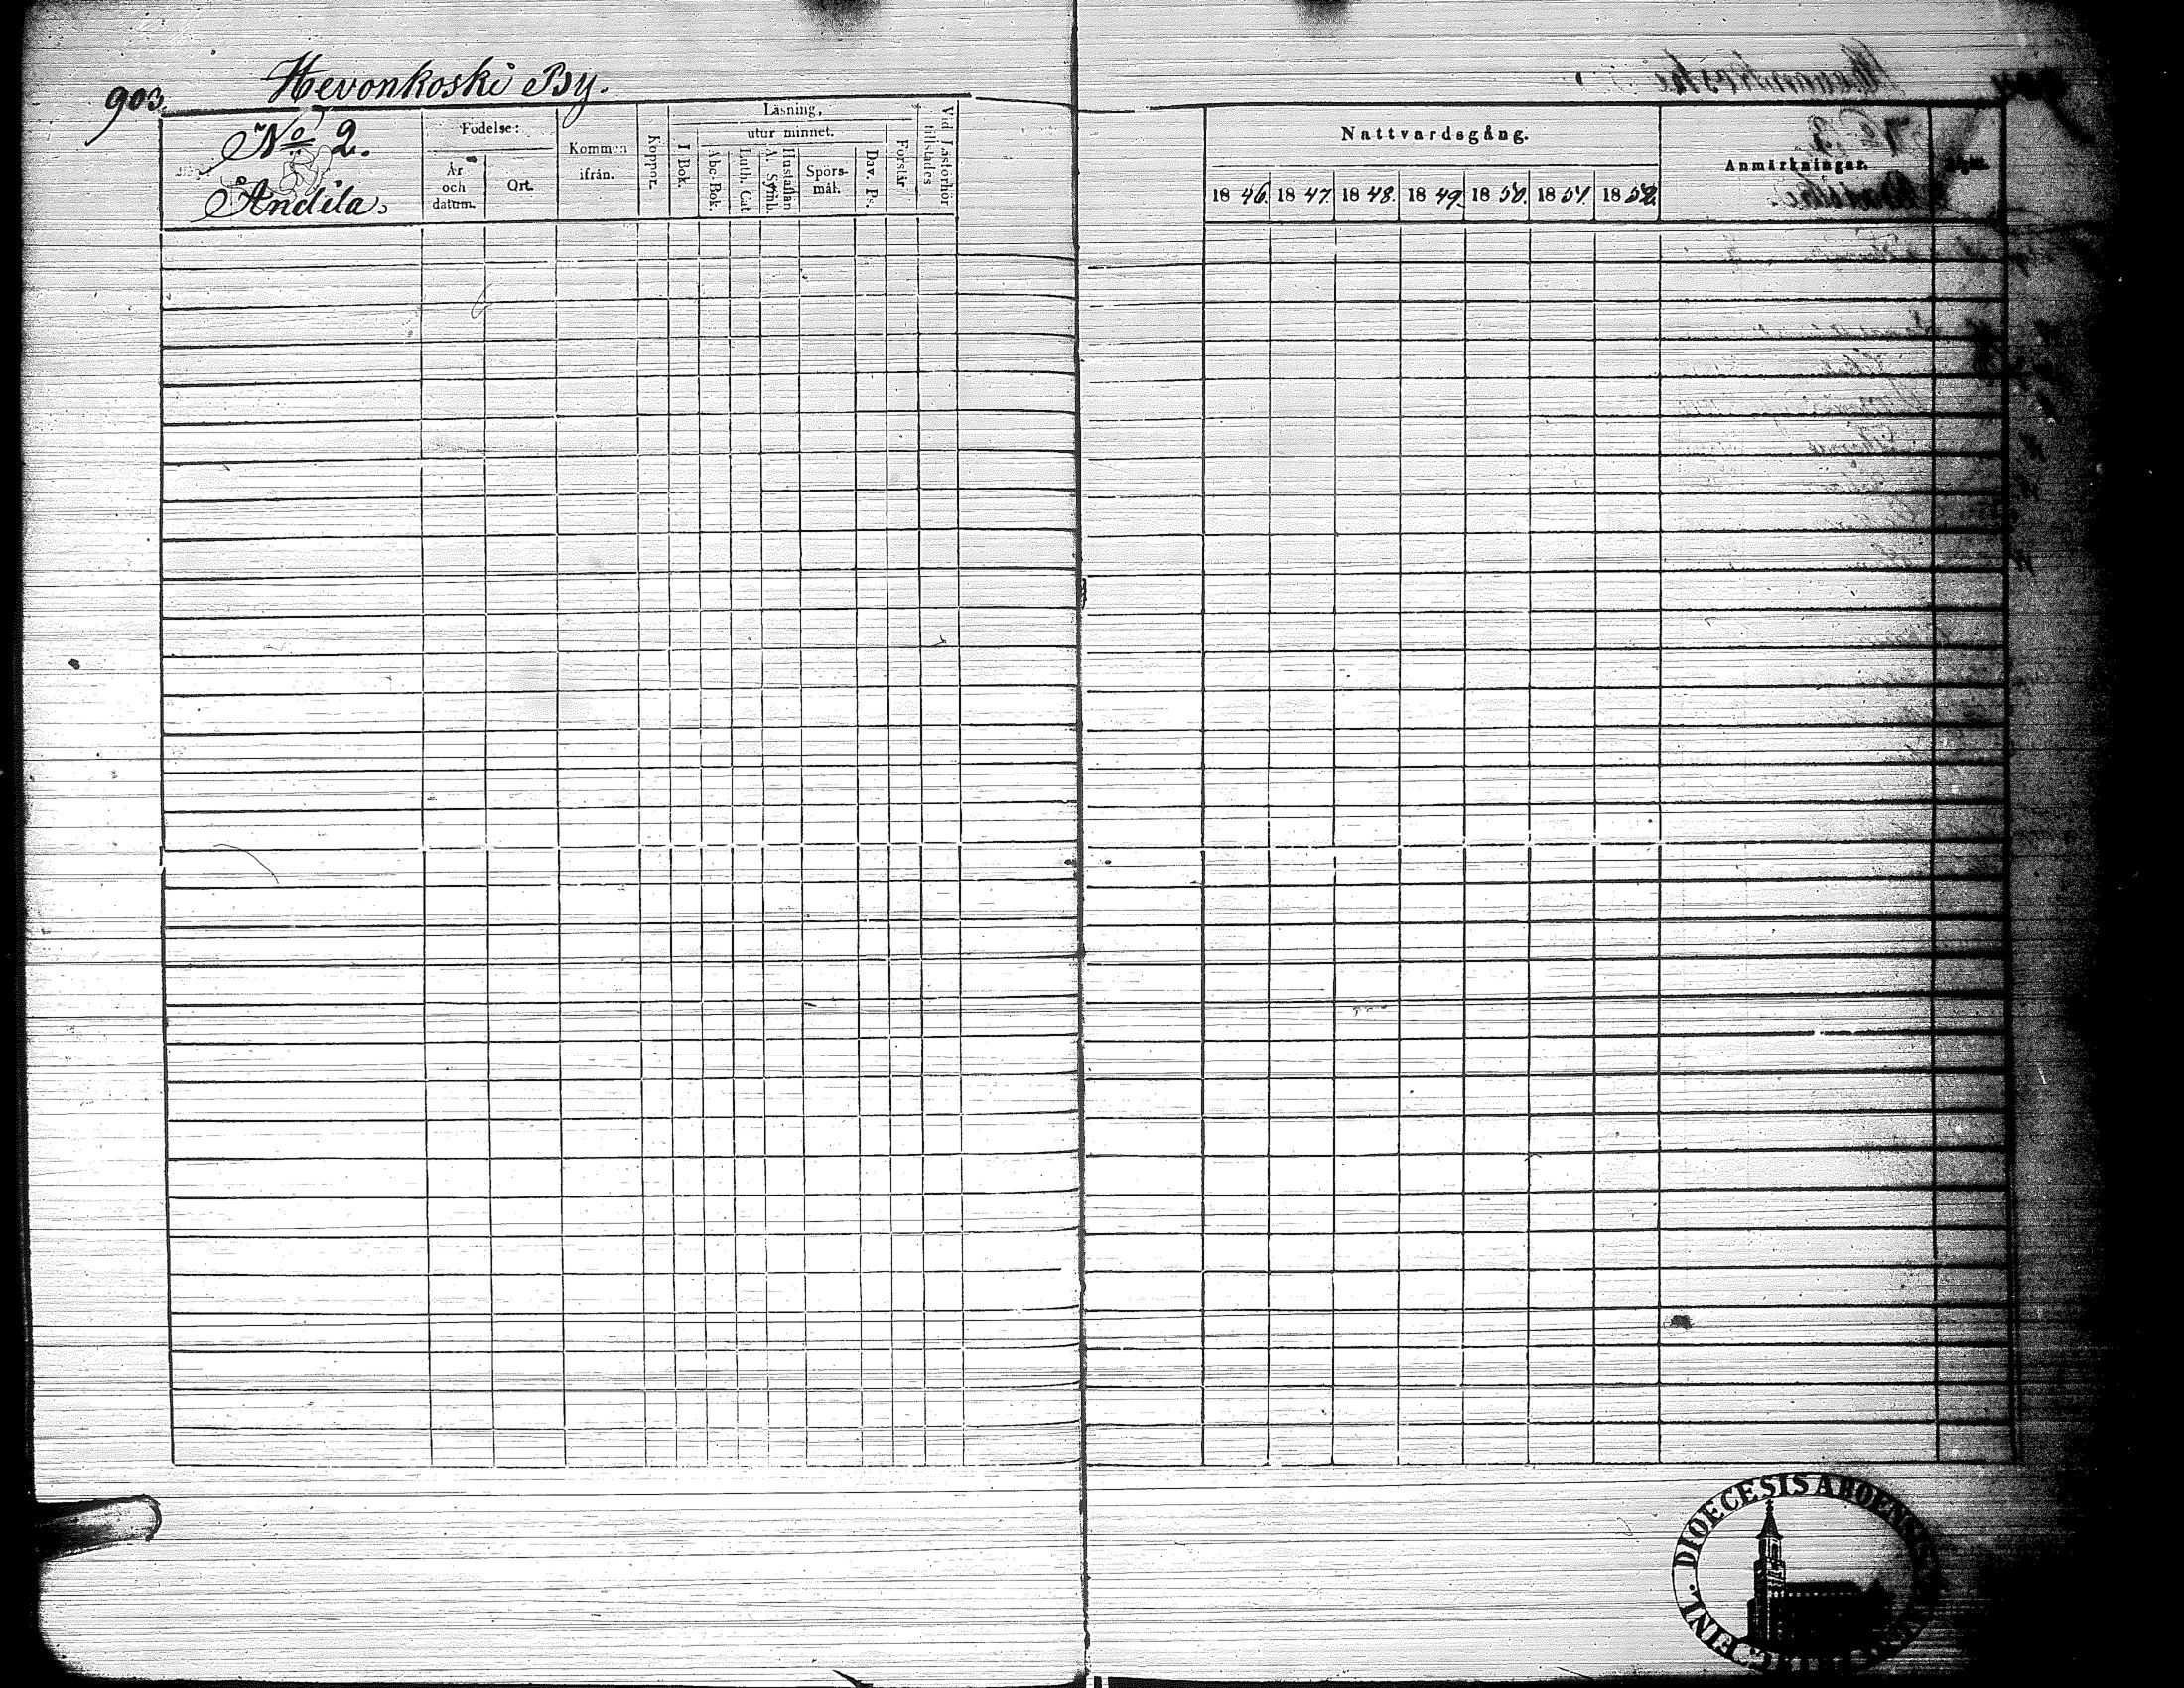 903.
Hevonkoski By.
No 2.
Andila.
Födelse:
År
och
datum.
Ort.
Kommen
ifrån.
Koppor.
Läsning,
I Bok.
utur minnet.
Abc-Bok.
Luth. Cat
A. Symb.
Hustaflan
Spörs-
mål.
Dav. Ps.
Förstår
Vid Läsförhör
tillstädes
Nattvardsgång.
1846. 1847. 1848. 1849. 1850. 1851. 1852.
Anmärkningar.
DIOECESIS ABOENSIS
FINL.